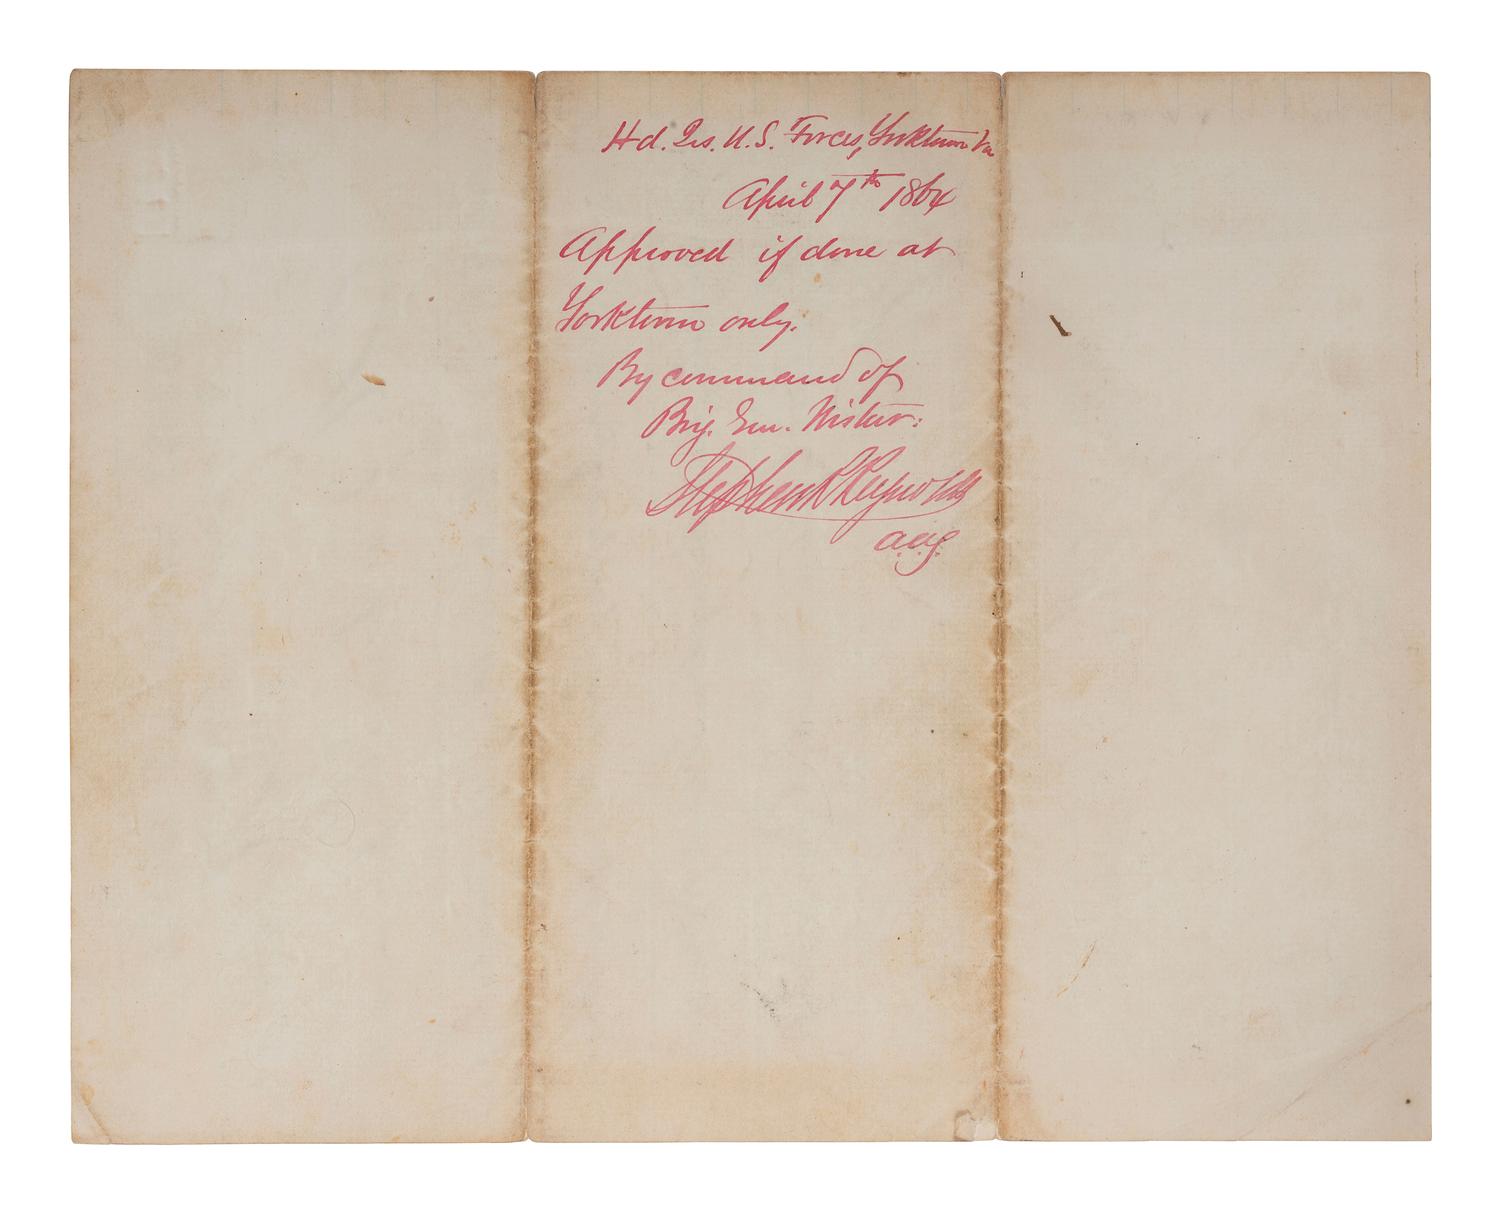 Hd. Qrs. U.S. Forces, Yorktown Va
April 7th 1864
Approved if done at
Yorktown only.
By command of
Brig. Gen. Wistar:
Stephen R Reynolds
a.a.g.